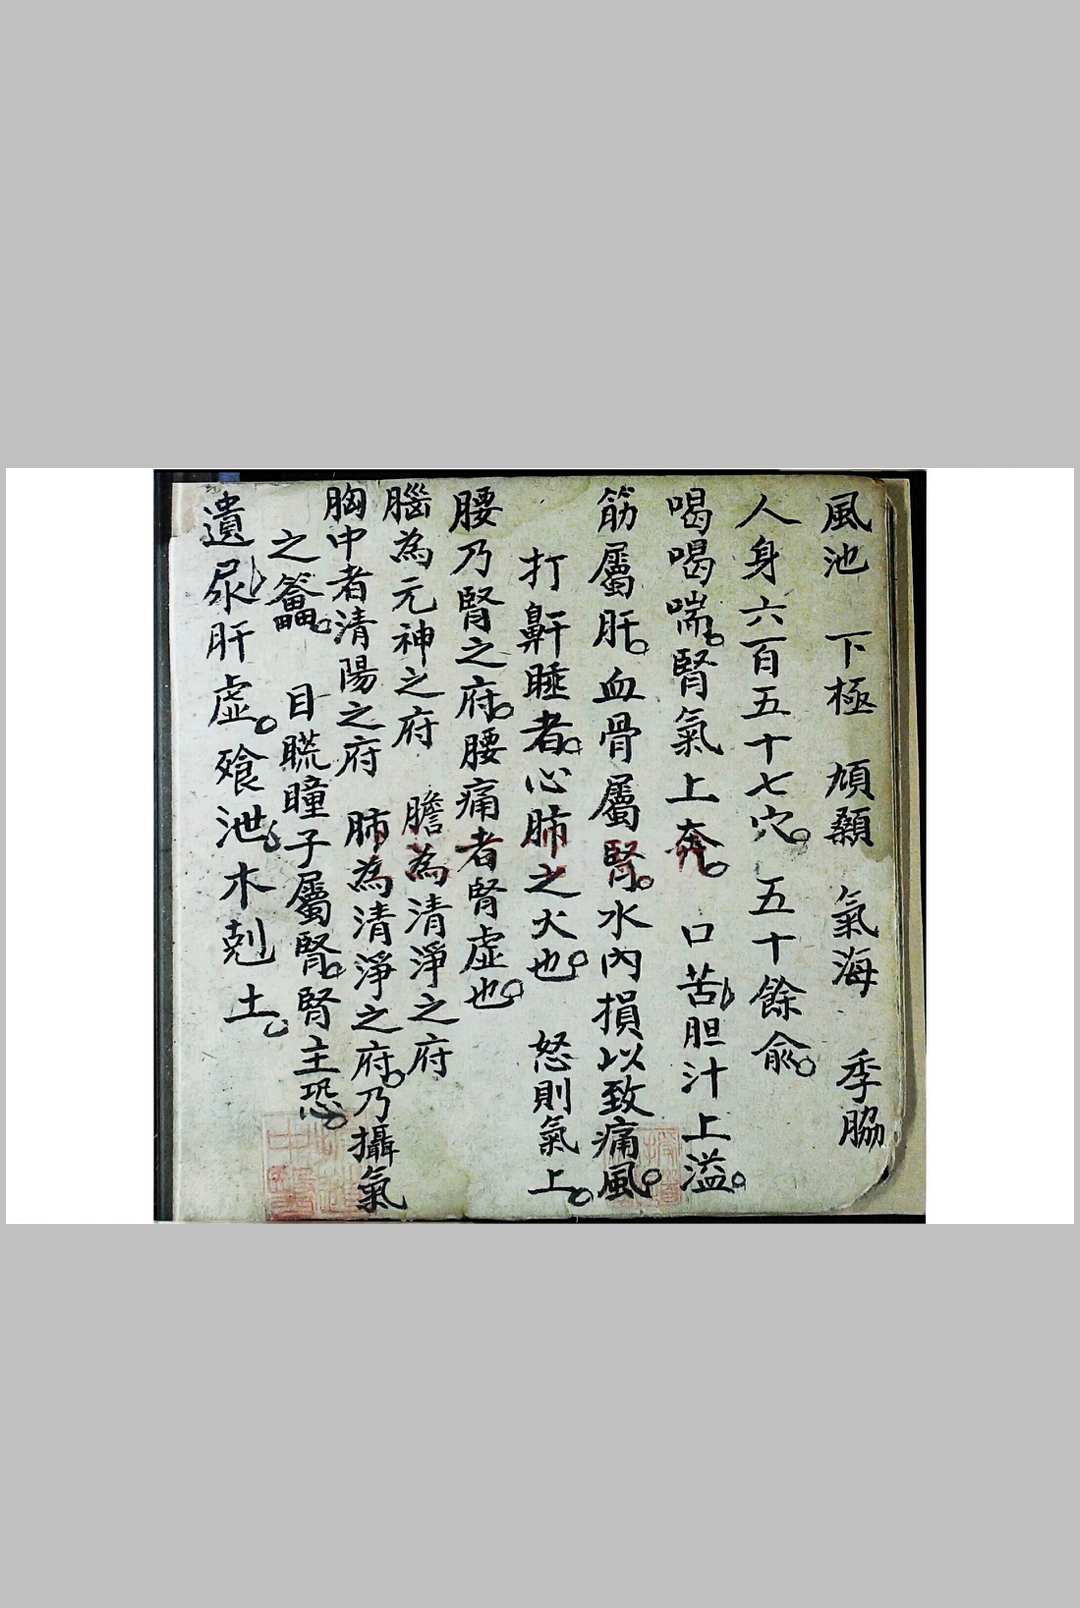 風池 下極 頄顙 氣海 季脇
人身六百五十七穴。五十餘俞。
喝喝喘。腎氣上奔。 口苦胆汁上溢。
筋屬肝。血骨屬腎。水內損以致痛風。
打鼾睡者。心肺之火也。 怒則氣上。
腰乃腎之府。腰痛者腎虛也。
腦為元神之府 膽為清淨之府
胸中者清陽之府 肺為清淨之府。乃攝氣
之籥。 目䀮瞳子屬腎。腎主恐。
遺尿肝虛。飱泄木剋土。